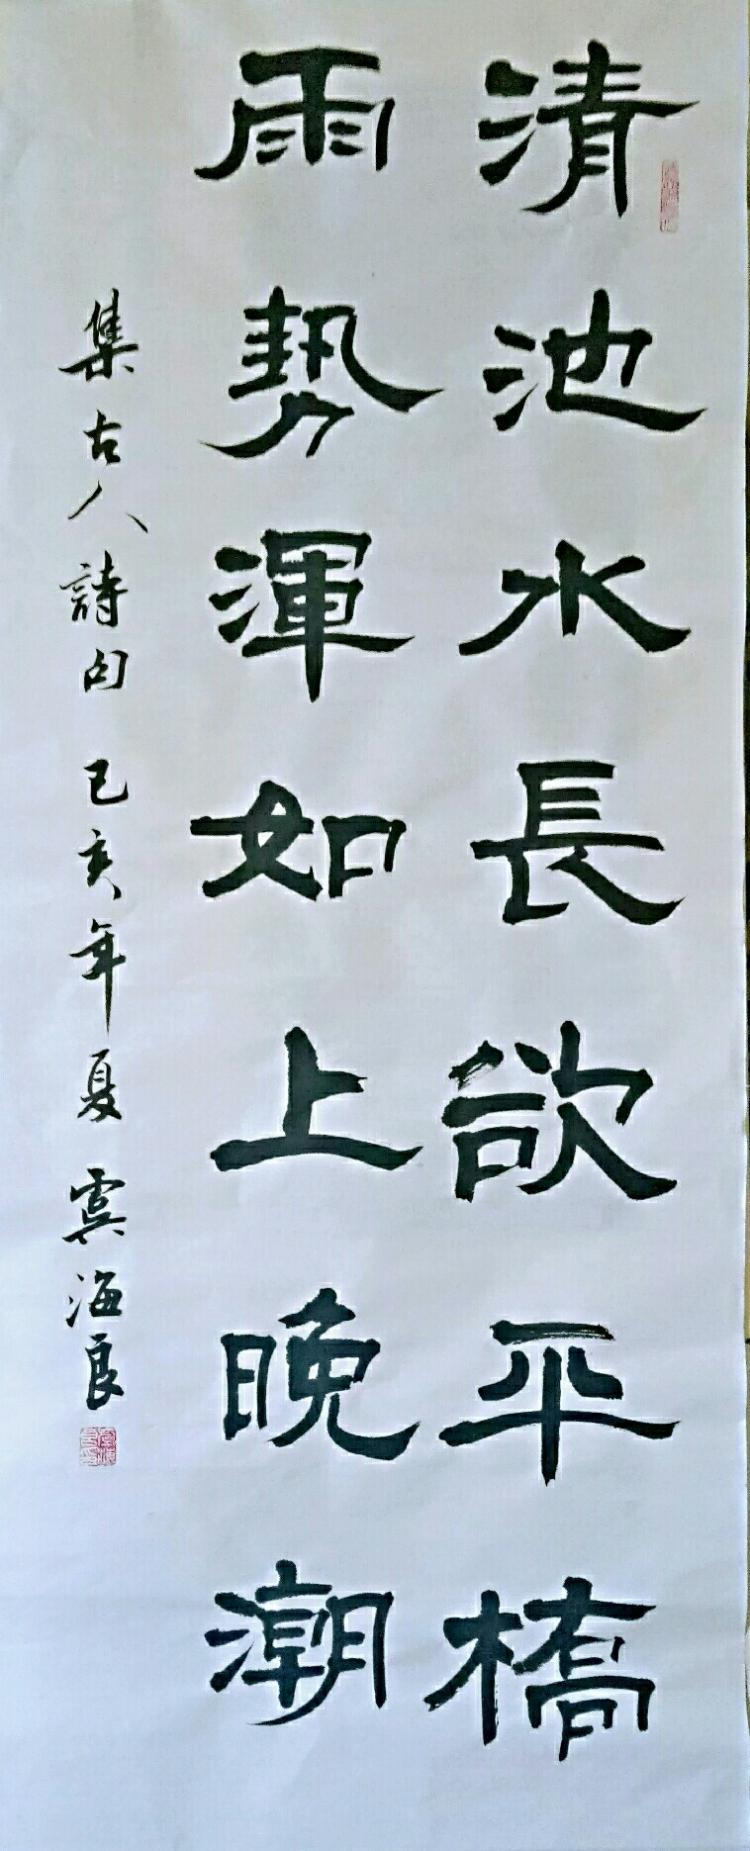 清池水長欲平橋
雨勢渾如上晚潮
集古人詩句 己亥年夏 虞海良